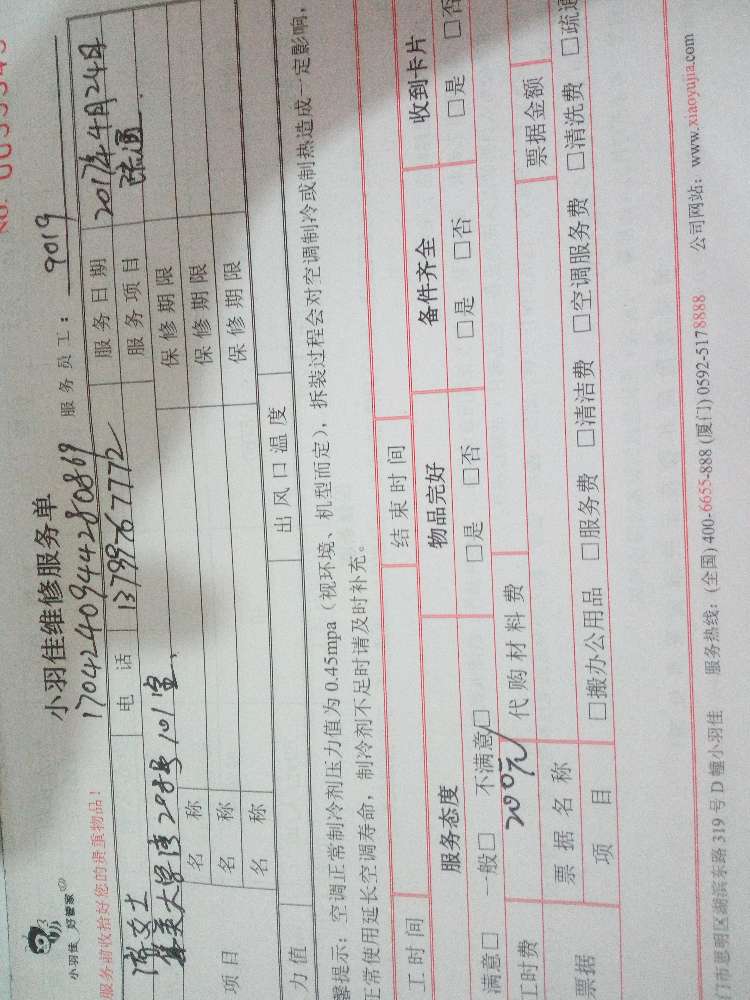 小羽佳 好管家
小羽佳维修服务单
17042409444280869
服务员工：9019
服务前请收拾好您的贵重物品！
女士 电话 13799767772 服务日期 2017年4月24日
大学 298号101室 服务项目 疏通
项目 名称 保修期限
名称 保修期限
名称 保修期限
力值 出风口温度
馨提示：空调正常制冷剂压力值为0.45mpa（视环境、机型而定），拆装过程会对空调制冷或制热造成一定影响，
正常使用延长空调寿命，制冷剂不足时请及时补充。
工时间 结束时间
服务态度 物品完好 备件齐全 收到卡片
满意□ 一般□ 不满意□ □是 □否 □是 □否 □是 □否
工时费 200元 代购材料费
票据 票据名称 票据金额
项目 □搬办公用品 □服务费 □清洁费 □空调服务费 □清洗费 □疏通
门市思明区湖滨东路319号D幢小羽佳 服务热线：(全国) 400-6655-888 (厦门) 0592-5178888 公司网站：www.xiaoyujia.com